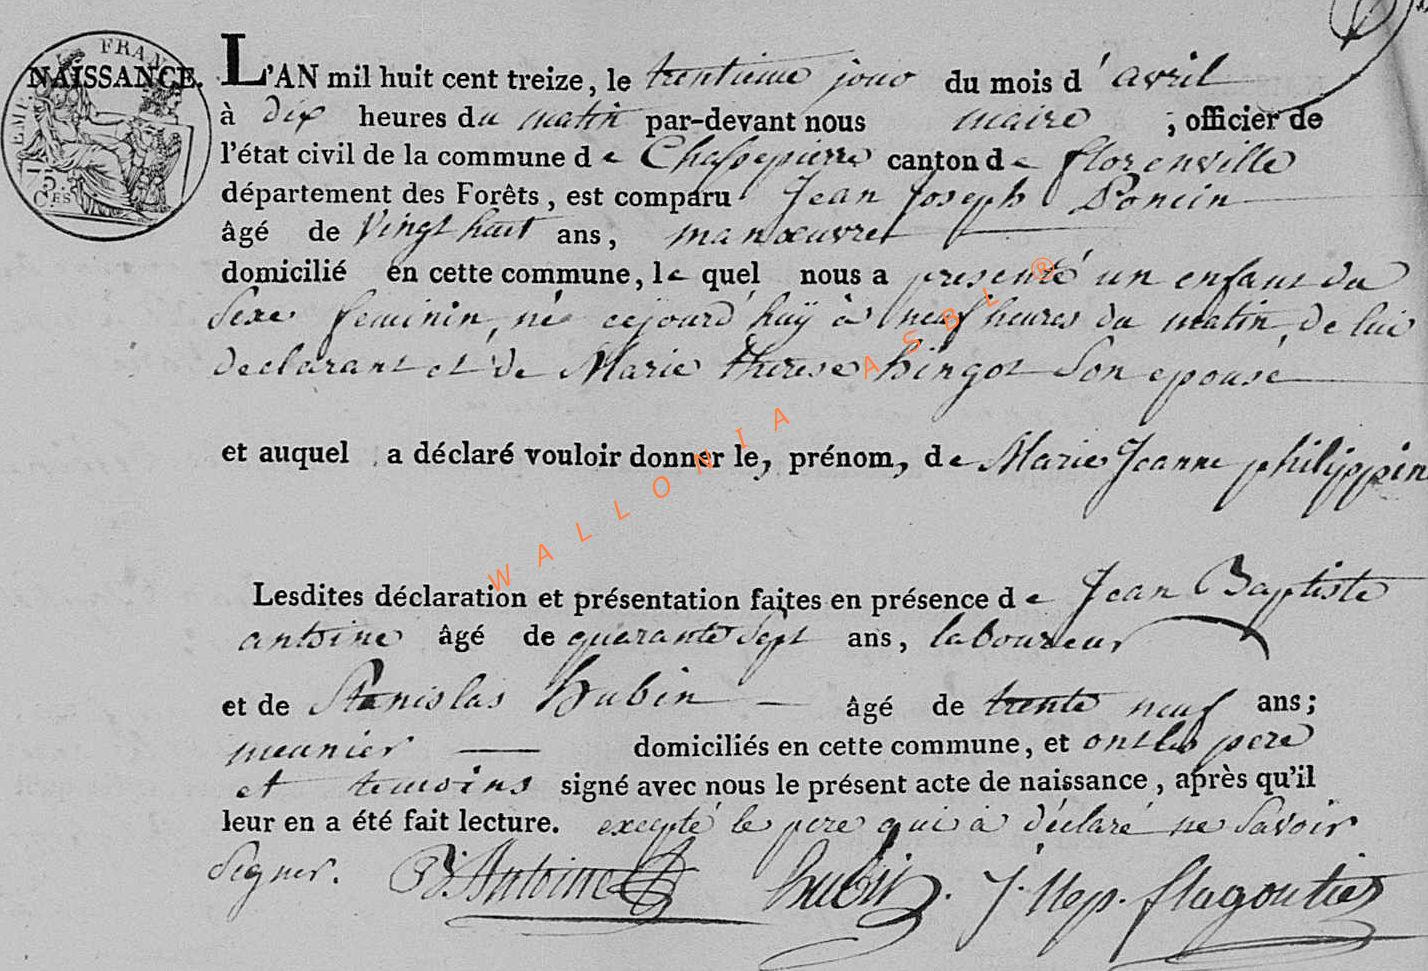 FRAN
EMP
75
CES
NAISSANCE.
L'AN mil huit cent treize, le trentieme jour du mois d'avril
à dix heures du matin par-devant nous maire ; officier de
l'état civil de la commune de Chassepierre canton de florenville
département des Forêts, est comparu Jean Joseph Poncin
âgé de Vingt huit ans, manœuvre
domicilié en cette commune, le quel nous a presenté un enfant du
Sexe feminin, né cejourd'huÿ à neuf heures du matin, de lui
declarant et de Marie therese hingot Son epouse
et auquel a déclaré vouloir donner le, prénom, de Marie Jeanne philippin
Lesdites déclaration et présentation faites en présence de Jean Baptiste
antoine âgé de quarante Sept ans, laboureur
et de Stanislas hubin âgé de trente neuf ans;
meunier domiciliés en cette commune, et ont les pere
et temoins signé avec nous le présent acte de naissance, après qu'il
leur en a été fait lecture. excepté le pere qui a déclaré ne Savoir
Signer. Antoine hubin. J. Nep. flagontier
WALLONIA ASBL ®